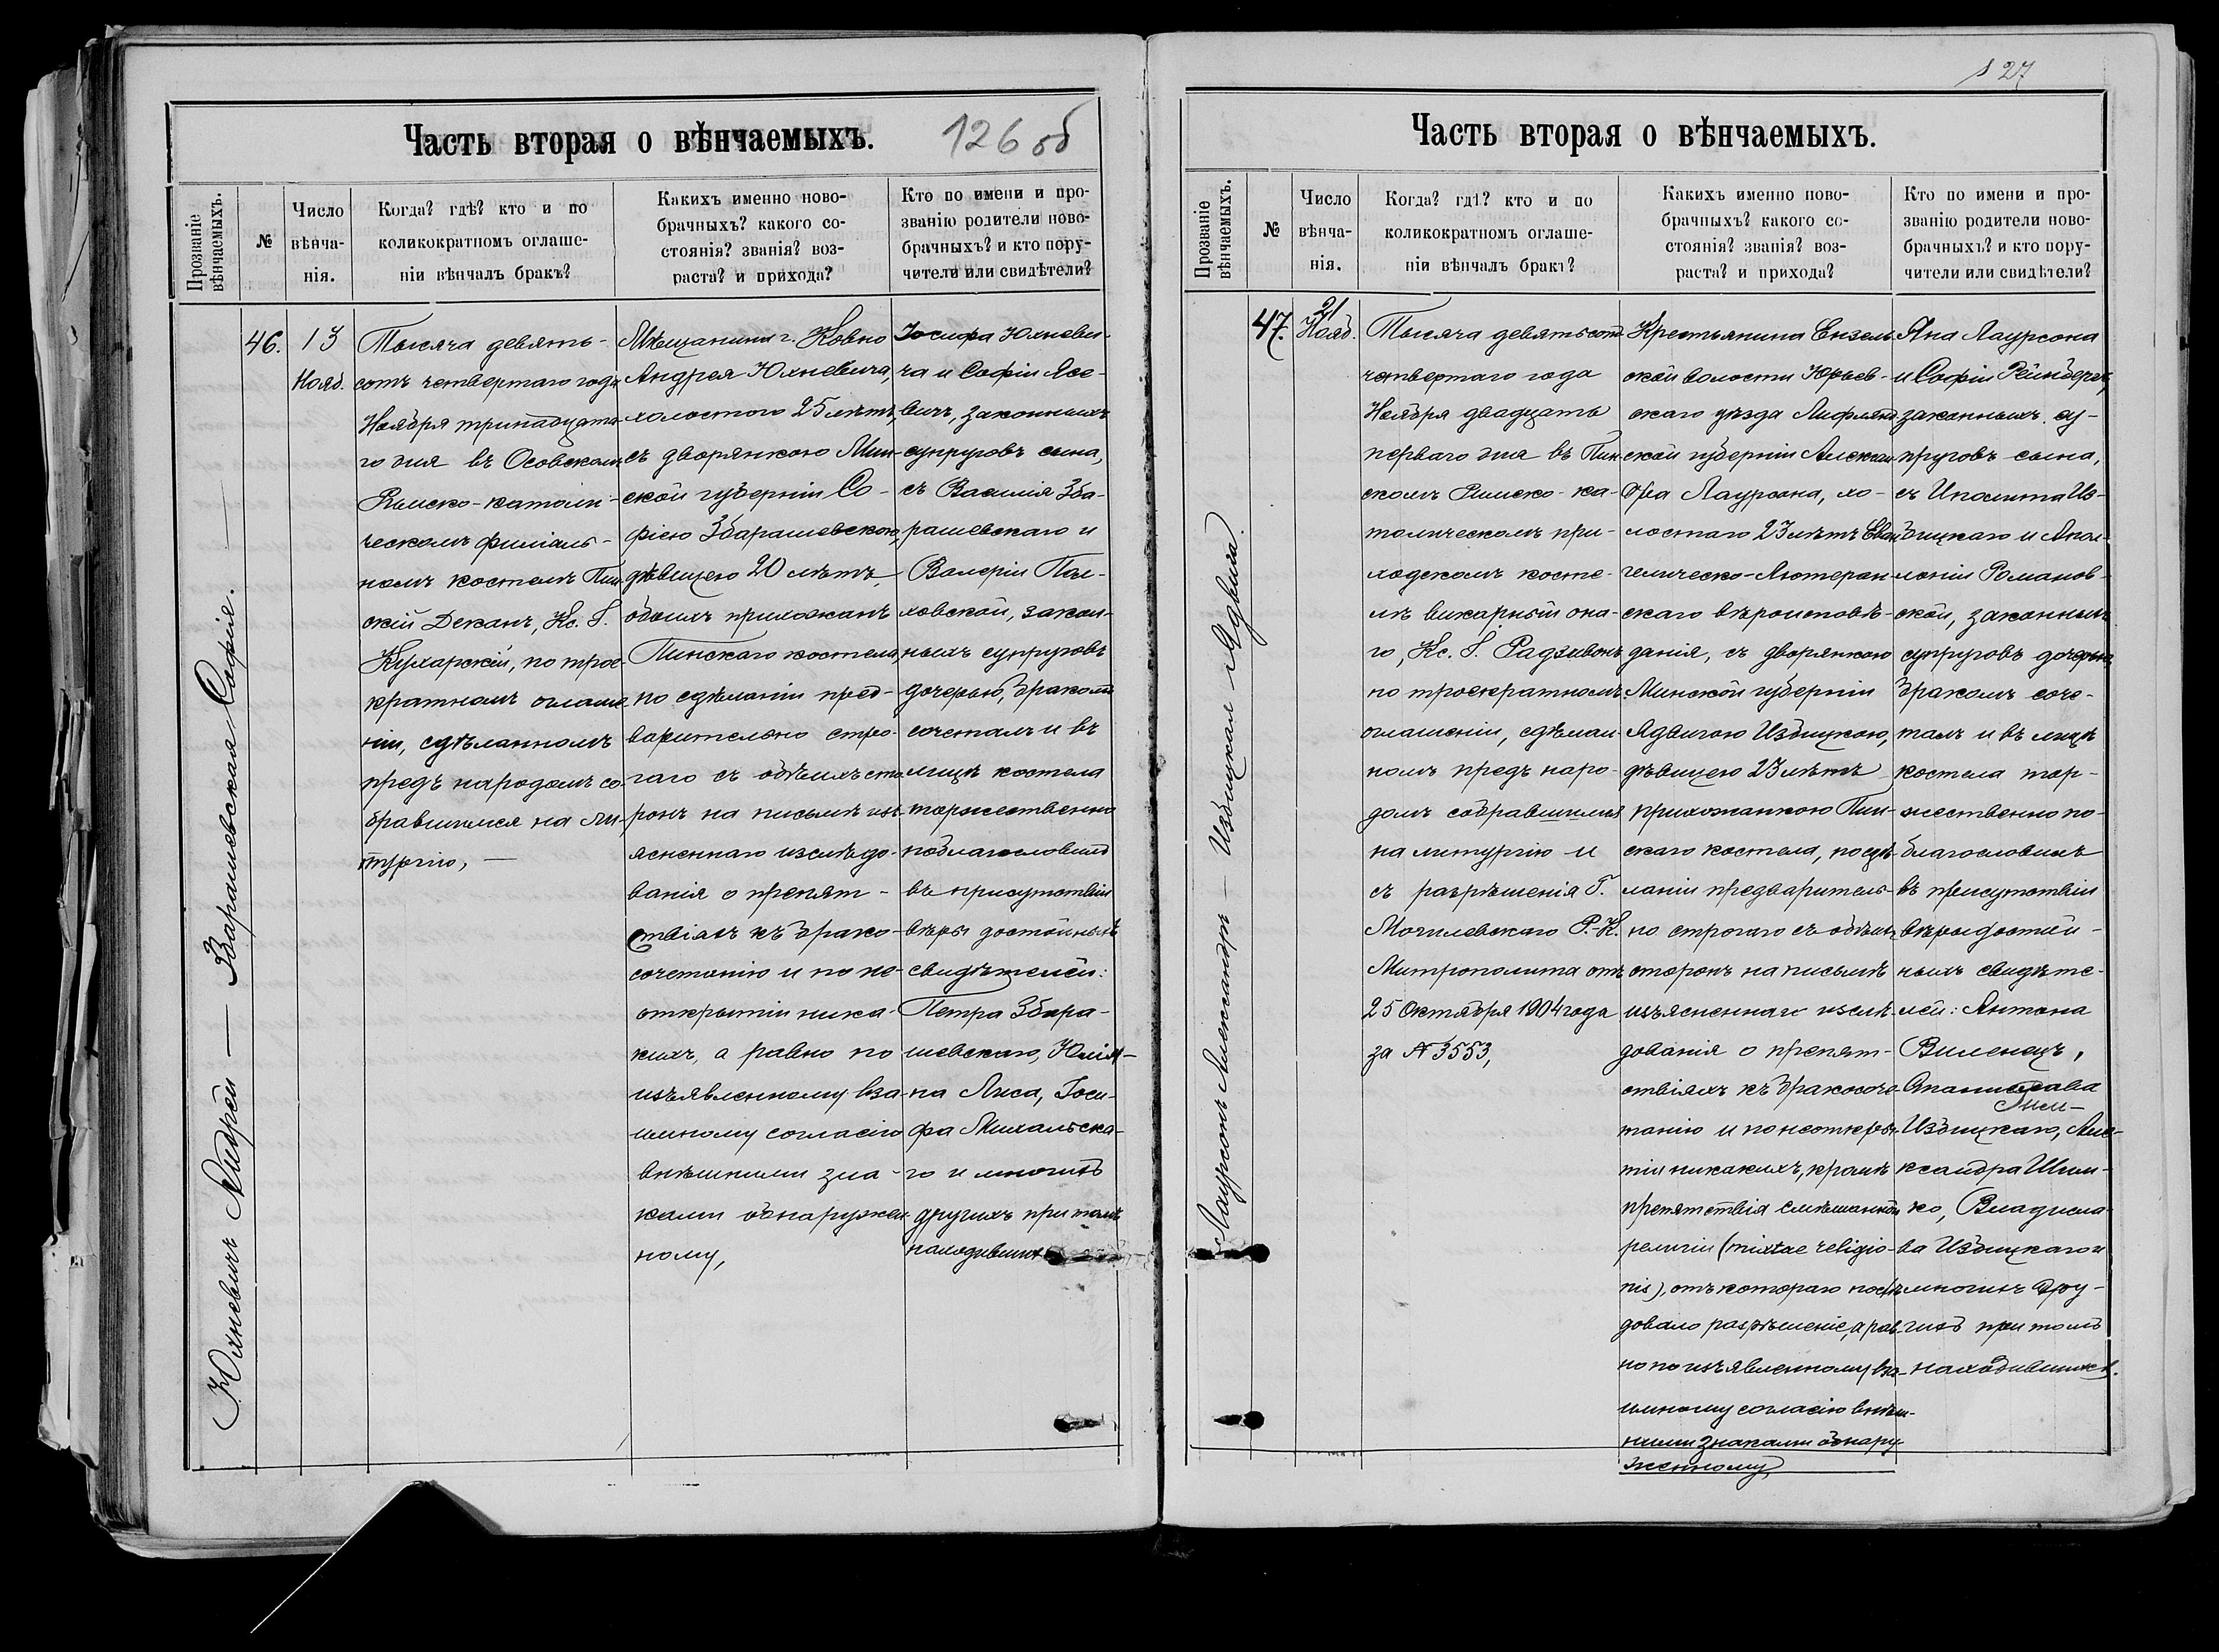 Часть вторая о вѣнчаемыхъ.
126 об
Прозваніе вѣнчаемыхъ.
№
Число вѣнча-
нія.
Когда? гдѣ? кто и по
коликократномъ оглаше-
ніи вѣнчалъ бракъ?
Какихъ именно ново-
брачныхъ? какого со-
стоянія? званія? воз-
раста? и прихода?
Кто по имени и про-
званію родители ново-
брачныхъ? и кто пору-
чители или свидѣтели?
Юхневичъ Андрей — Збарашевская Софія.
46.
13
Нояб.
Тысяча девять-
сотъ четвертаго года
Ноября тринадцата-
го дня въ Осовскомъ
Римско-католи-
ческомъ филіаль-
номъ костелѣ Пин-
скій Деканъ, Кс. І.
Кухарскій, по трое-
кратномъ оглаше-
ніи, сдѣланномъ
предъ народомъ со-
бравшимся на ли-
тургію, —
Мѣщанина г. Ковно
Андрея Юхневича,
холостого 25 лѣтъ,
съ дворянкою Мин-
ской губерніи Со-
фіею Збарашевскою,
дѣвицею 20 лѣтъ,
обоихъ прихожанъ
Пинскаго костела,
по сдѣланіи пред-
варительно стро-
гаго съ обѣихъ сто-
ронъ на письмѣ изъ-
ясненнаго изслѣдо-
ванія о препят-
ствіяхъ къ брако-
сочетанію и по не-
открытіи ника-
кихъ, а равно по
изъявленному вза-
имному согласію
внѣшними зна-
ками обнаружен-
ному,
Іосифа Юхневи-
ча и Софіи Ясе-
вичъ, законныхъ
супруговъ сына,
съ Василія Зба-
рашевскаго и
Валеріи Пол-
ховской, закон-
ныхъ супруговъ
дочерью, бракомъ
сочеталъ и въ
лицѣ костела
торжественно
поблагословилъ
въ присутствіи
вѣры достойныхъ
свидѣтелей:
Петра Збара-
шевскаго, Юлія-
на Лиса, Іоси-
фа Михальска-
го и многихъ
другихъ при томъ
находившихся
127
Часть вторая о вѣнчаемыхъ.
Прозваніе вѣнчаемыхъ.
№
Число
вѣнча-
нія.
Когда? гдѣ? кто и по
коликократномъ оглаше-
ніи вѣнчалъ бракъ?
Какихъ именно ново-
брачныхъ? какого со-
стоянія? званія? воз-
раста? и прихода?
Кто по имени и про-
званію родители ново-
брачныхъ? и кто пору-
чители или свидѣтели?
Лаурсонъ Александръ — Избицкая Ядвига.
47.
21
Нояб.
Тысяча девятьсотъ
четвертаго года
Ноября двадцать
перваго дня въ Пин-
скомъ Римско-ка-
толическомъ при-
ходскомъ косте-
лѣ викарный она-
го, Кс. І. Радзивонъ
по троекратномъ
оглашеніи, сдѣлан-
номъ предъ наро-
домъ собравшимся
на литургію и
съ разрѣшенія Г.
Могилевскаго Р.-К.
Митрополита отъ
25 Октября 1904 года
за № 3553,
Крестьянина Ензель-
ской волости Юрьев-
скаго уѣзда Лифлянд-
ской губерніи Алексан-
дра Лаурсона, хо-
лостаго 23 лѣтъ Еван-
гелическо-Лютеран-
скаго вѣроисповѣ-
данія, съ дворянкою
Минской губерніи
Ядвигою Избицкою,
дѣвицею 23 лѣтъ
прихожанкою Пин-
скаго костела, по сдѣ-
ланіи предваритель-
но строгаго съ обѣихъ
сторонъ на письмѣ
изъясненнаго изслѣ-
дованія о препят-
ствіяхъ къ бракосоче-
танію и по неоткры-
тіи никакихъ, кромѣ
препятствія смѣшанной
религіи (mixtae religio-
nis), отъ котораго послѣ-
довало разрѣшеніе, а рав-
но по изъявленному вза-
имному согласію внѣш-
ними знаками обнару-
женному,
Яна Лаурсона
и Софіи Рейнбергъ,
законныхъ су-
пруговъ сына,
съ Иполита Из-
бицкаго и Апол-
лоніи Романов-
ской, законныхъ
супруговъ дочерью,
бракомъ соче-
талъ и въ лицѣ
костела тор-
жественно по-
благословилъ
въ присутствіи
вѣры достой-
ныхъ свидѣте-
лей: Антона
Виленецъ,
Станислава
Избицкаго, Але-
ксандра Шим-
ко, Владисла-
ва Избицкаго и
многихъ дру-
гихъ при томъ
находившихся.